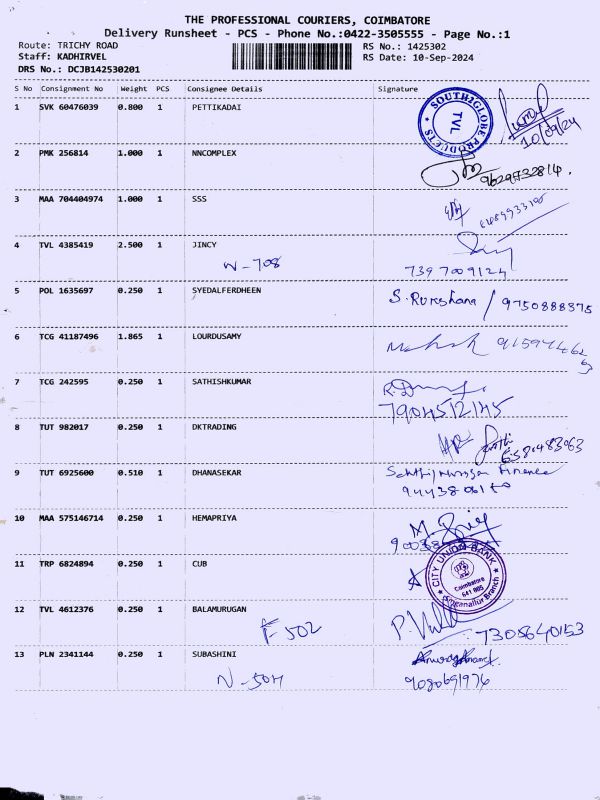 THE PROFESSIONAL COURIERS, COIMBATORE
Delivery Runsheet - PCS - Phone No.:0422-3505555 - Page No.:1
Route: TRICHY ROAD RS No.: 1425302
Staff: KADHIRVEL RS Date: 10-Sep-2024
DRS No.: DCJB142530201
S No Consignment No Weight PCS Consignee Details Signature
1 SVK 60476039 0.800 1 PETTIKADAI
SOUTH2GLOBE PRODUCTS
TVL
10/09/24
2 PMK 256814 1.000 1 NNCOMPLEX
9629732814.
3 MAA 704404974 1.000 1 SSS
4 TVL 4385419 2.500 1 JINCY
N-708
7397009124
5 POL 1635697 0.250 1 SYEDALFERDHEEN
9750888375
6 TCG 41187496 1.865 1 LOURDUSAMY
7 TCG 242595 0.250 1 SATHISHKUMAR
7904512145
8 TUT 982017 0.250 1 DKTRADING
9 TUT 6925600 0.510 1 DHANASEKAR
Finance
10 MAA 575146714 0.250 1 HEMAPRIYA
11 TRP 6824894 0.250 1 CUB
CITY UNION BANK
Coimbatore
641 005
Singanallur Branch
12 TVL 4612376 0.250 1 BALAMURUGAN
F 502
7305640153
13 PLN 2341144 0.250 1 SUBASHINI
N-504
9080691976